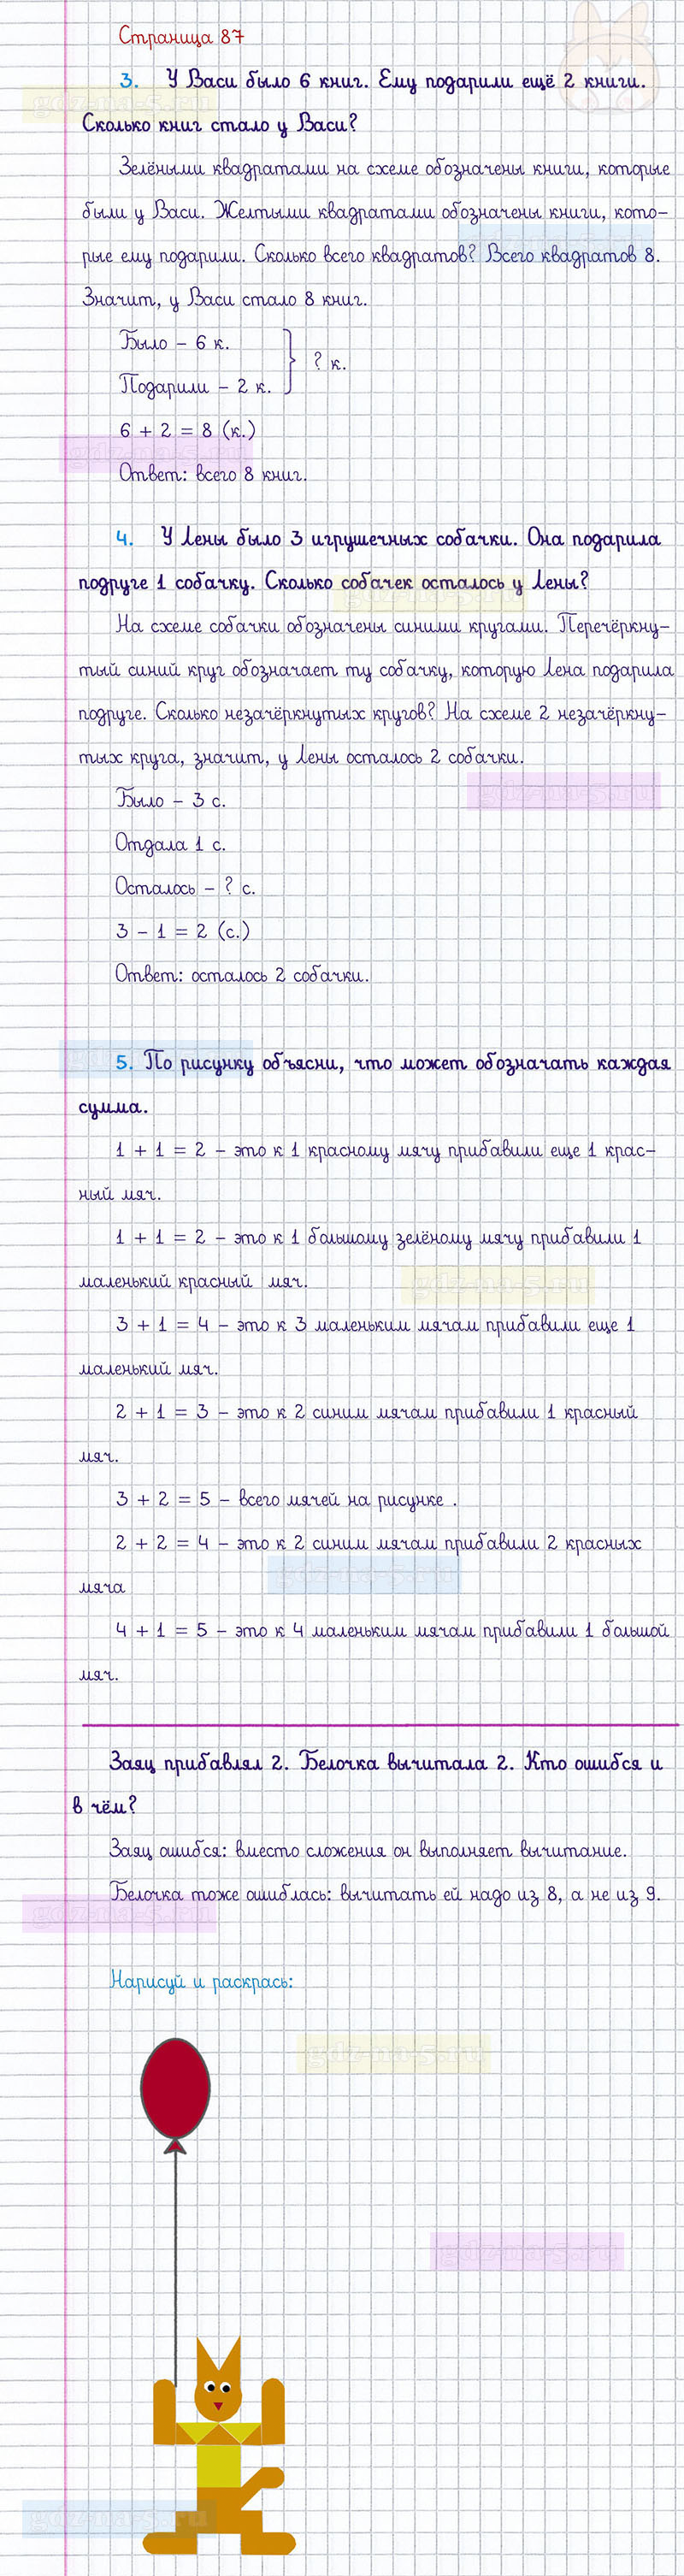 Страница 87
3. У Васи было 6 книг. Ему подарили ещё 2 книги.
Сколько книг стало у Васи?
Зелёными квадратами на схеме обозначены книги, которые
были у Васи. Желтыми квадратами обозначены книги, кото-
рые ему подарили. Сколько всего квадратов? Всего квадратов 8.
Значит, у Васи стало 8 книг.
Было – 6 к.
? к.
Подарили – 2 к.
6 + 2 = 8 (к.)
Ответ: всего 8 книг.
4. У Лены было 3 игрушечных собачки. Она подарила
подруге 1 собачку. Сколько собачек осталось у Лены?
На схеме собачки обозначены синими кругами. Перечёркну-
тый синий круг обозначает ту собачку, которую Лена подарила
подруге. Сколько незачёркнутых кругов? На схеме 2 незачёркну-
тых круга, значит, у Лены осталось 2 собачки.
Было – 3 с.
Отдала 1 с.
Осталось – ? с.
3 – 1 = 2 (с.)
Ответ: осталось 2 собачки.
5. По рисунку объясни, что может обозначать каждая
сумма.
1 + 1 = 2 – это к 1 красному мячу прибавили еще 1 крас-
ный мяч.
1 + 1 = 2 – это к 1 большому зелёному мячу прибавили 1
маленький красный мяч.
3 + 1 = 4 – это к 3 маленьким мячам прибавили еще 1
маленький мяч.
2 + 1 = 3 – это к 2 синим мячам прибавили 1 красный
мяч.
3 + 2 = 5 – всего мячей на рисунке .
2 + 2 = 4 – это к 2 синим мячам прибавили 2 красных
мяча
4 + 1 = 5 – это к 4 маленьким мячам прибавили 1 большой
мяч.
Заяц прибавлял 2. Белочка вычитала 2. Кто ошибся и
в чём?
Заяц ошибся: вместо сложения он выполняет вычитание.
Белочка тоже ошиблась: вычитать ей надо из 8, а не из 9.
gdz-na-5.ru
Нарисуй и раскрась:
gdz-na-5.ru
gdz-na-5.ru
gdz-na-5.ru